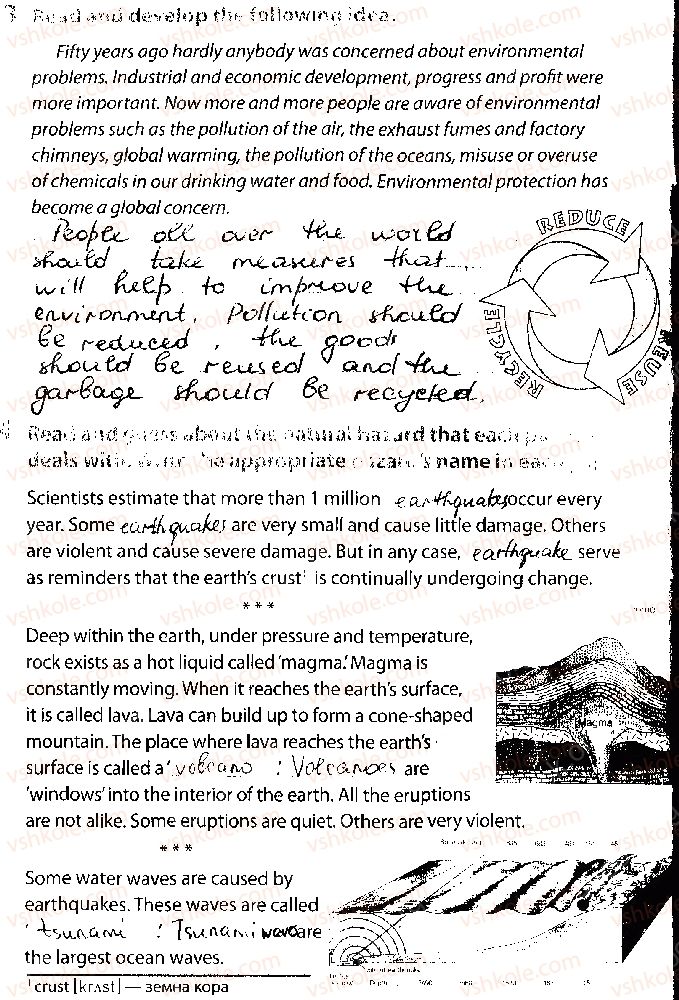 3 Read and develop the following idea.
Fifty years ago hardly anybody was concerned about environmental
problems. Industrial and economic development, progress and profit were
more important. Now more and more people are aware of environmental
problems such as the pollution of the air, the exhaust fumes and factory
chimneys, global warming, the pollution of the oceans, misuse or overuse
of chemicals in our drinking water and food. Environmental protection has
become a global concern.
People all over the world
should take measures that
will help to improve the
environment. Pollution should
be reduced, the goods
should be reused and the
garbage should be recycled.
REDUCE
REUSE
RECYCLE
4 Read and guess about the natural hazard that each
deals with. the appropriate name in
Scientists estimate that more than 1 million earthquakes occur every
year. Some earthquakes are very small and cause little damage. Others
are violent and cause severe damage. But in any case, earthquake serve
as reminders that the earth's crust¹ is continually undergoing change.
***
Deep within the earth, under pressure and temperature,
rock exists as a hot liquid called 'magma.' Magma is
constantly moving. When it reaches the earth's surface,
it is called lava. Lava can build up to form a cone-shaped
mountain. The place where lava reaches the earth's
surface is called a 'volcano'. Volcanoes are
'windows' into the interior of the earth. All the eruptions
are not alike. Some eruptions are quiet. Others are very violent.
Magma
***
Some water waves are caused by
earthquakes. These waves are called
'tsunami'. Tsunami waves are
the largest ocean waves.
¹ crust [krʌst] — земна кора
vshkole.com